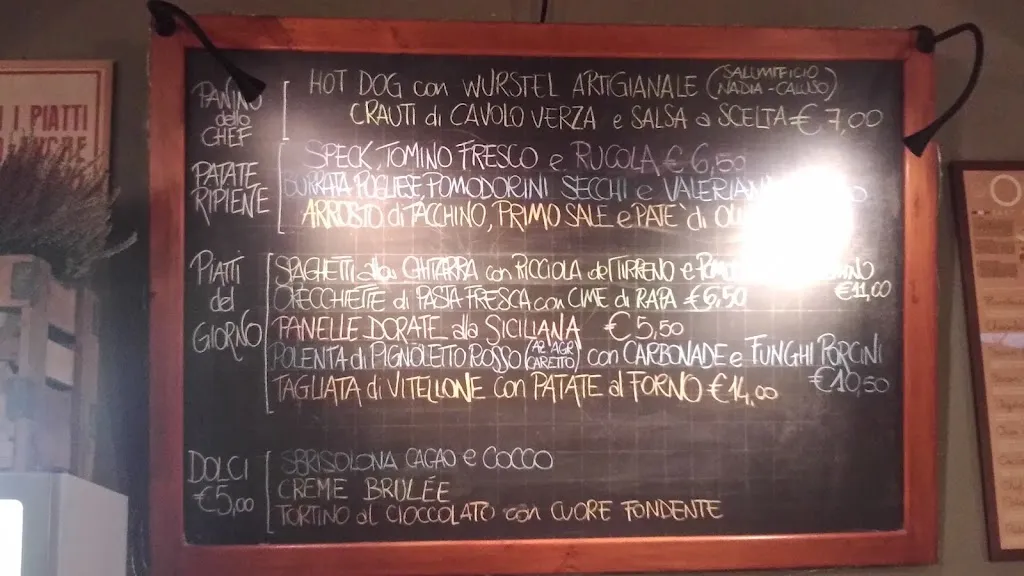 I PIATTI
PANINO dello CHEF
HOT DOG con WURSTEL ARTIGIANALE (SALUMIFICIO NADIA - CALUSO)
CRAUTI di CAVOLO VERZA e SALSA a SCELTA € 7,00
PATATE RIPIENE
SPECK, TOMINO FRESCO e RUCOLA € 6,50
BURRATA PUGLIESE POMODORINI SECCHI e
ARROSTO di TACCHINO, PRIMO SALE e PATE' di
PIATTI del GIORNO
SPAGHETTI alla CHITARRA con RICCIOLA del TIRRENO e
€11,00
ORECCHIETTE di PASTA FRESCA con CIME di RAPA €6,50
PANELLE DORATE alla SICILIANA €5,50
POLENTA di PIGNOLETTO ROSSO (AZ. AGR. CARETTO) con CARBONADE e FUNGHI PORCINI
€10,50
TAGLIATA di VITELLONE con PATATE al FORNO €14,00
DOLCI €5,00
SBRISOLONA CACAO e COCCO
CREME BRULÉE
TORTINO al CIOCCOLATO con CUORE FONDENTE